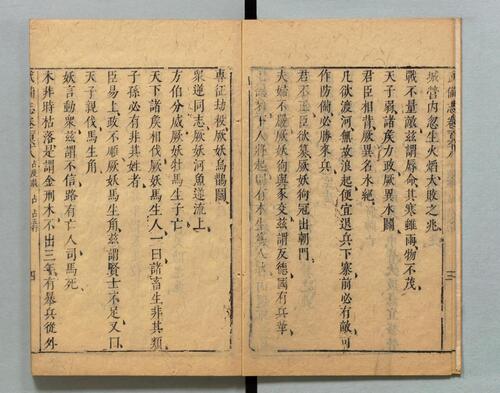 城營内忽生火焰大敗之兆
戰不量敵兹謂辱命其寒雖雨物不茂
天子弱諸矦力政厥異水鬬
君臣相背厥異名水絶
凡欲渡河無故浪起便宜退兵下寨前必有敵可
作防備必勝來兵
君不正臣欲簒厥妖狗冠出朝門
夫婦不嚴厥妖狗與豕交兹謂反德國有兵革
專征劫殺厥妖烏鵲鬬
衆逆同志厥妖河魚逆流上
方伯分威厥妖牡馬生子亡
天下諸矦相伐厥妖馬生人一曰諸畜生非其類
子孫必有非其姓者
臣易上政不順厥妖馬生角兹謂賢士不足又曰
天子親伐馬生角
妖言動衆兹謂不信路有亡人司馬死
木非時枯落是謂金刑木不出三年有暴兵從外
四